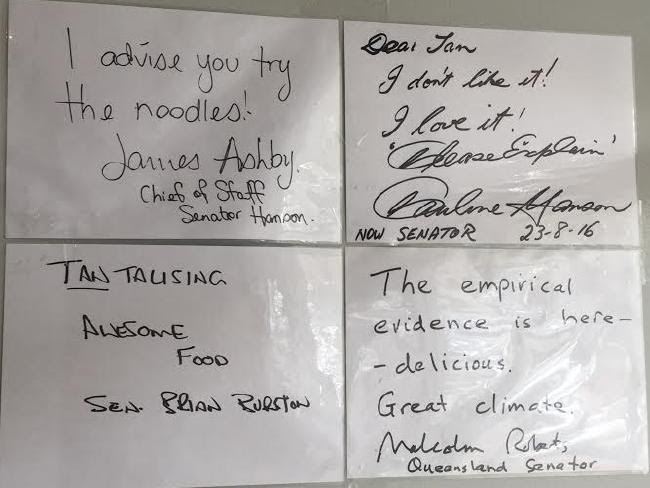 I advise you try
the noodles!
James Ashby.
Chief of Staff
Senator Hanson.
Dear Tan
I don't like it!
I love it!
'Please Explain'
Pauline Hanson
NOW SENATOR 23-8-16
TANTALISING
AWESOME
FOOD
SEN. BRIAN BURSTON
The empirical
evidence is here-
- delicious.
Great climate.
Malcolm Roberts,
Queensland Senator